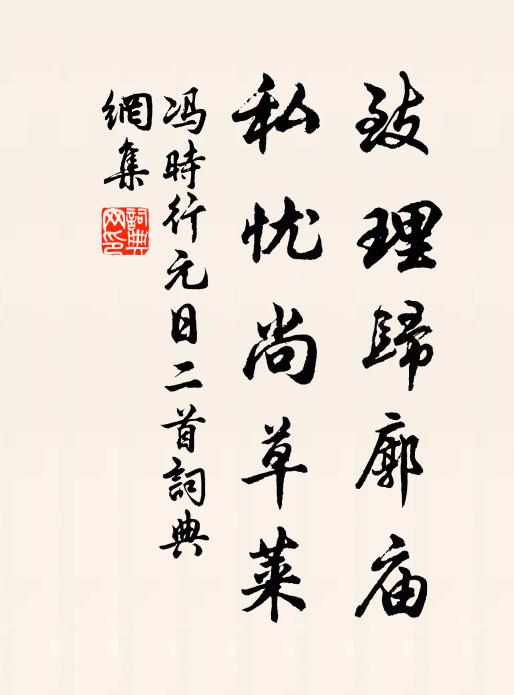 致理歸廓庙
私忧尚草萊
冯時行元日二首詞典
網集
詞典
网印